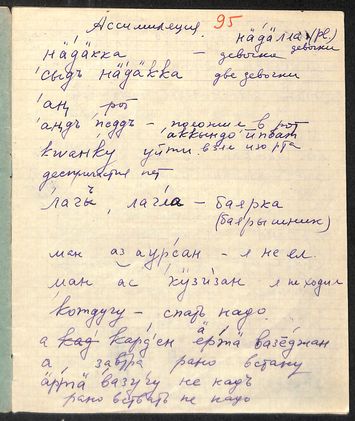 Ассимиляция. 95
нӓдӓлла (pl.)
нӓдӓкка – девочке девочки
сыдъ нӓдӓкка две девочки
аң рот
аңдъ педдъ – положил в рот
аккындо
кыанку уйти взял изо рта
десн нет
лагъ, лагла – баярка
(боярышник)
ман аз аурсан – я не ел.
ман ас кӱзизан я не ходил
котдугу – спать надо.
а кад кард'ен ӓртӓ вазеджан
а завтра рано встану
ӓртӓ вазугу не надъ
рано вставать не надо